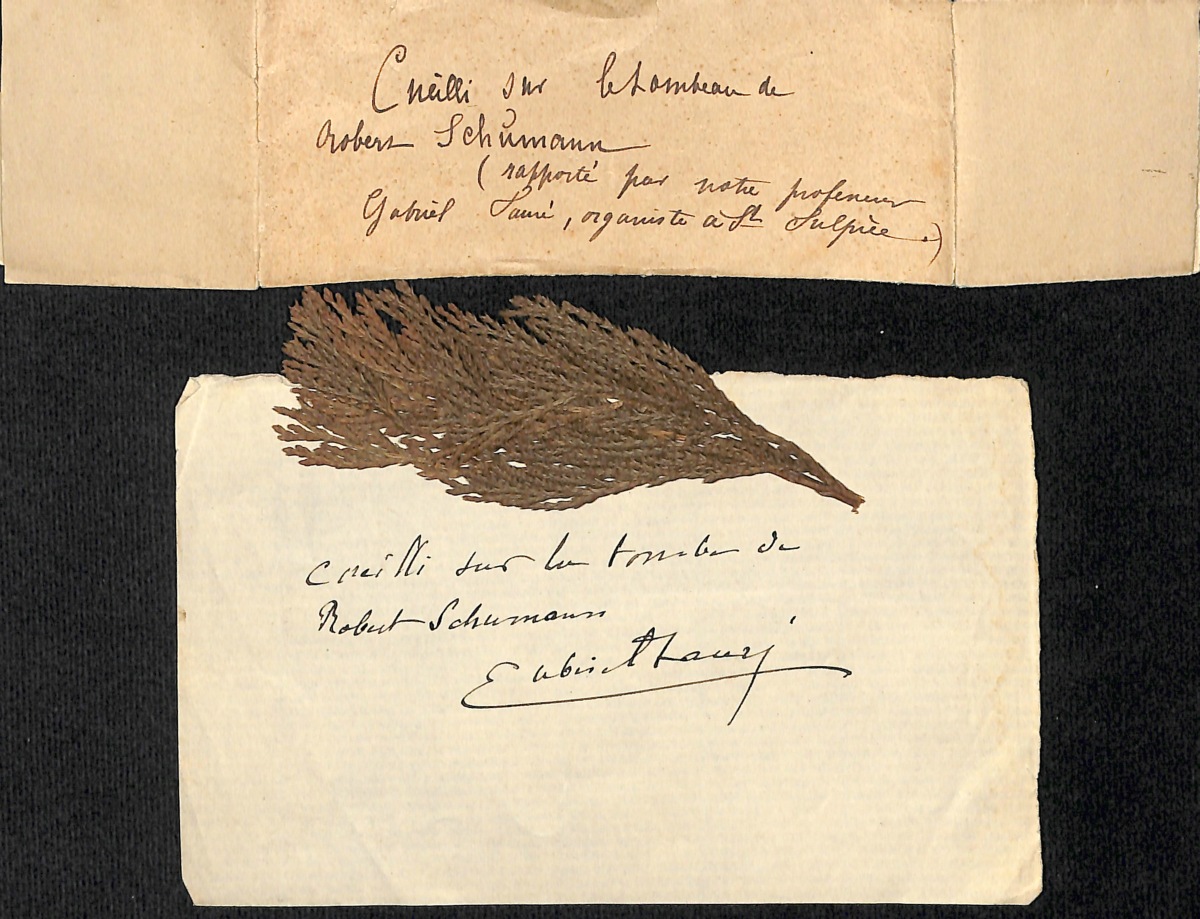 Cueilli sur le tombeau de
Robert Schumann
(rapporté par notre professeur
Gabriel Fauré, organiste à St Sulpice.)
cueilli sur la tombe de
Robert Schumann
Gabriel Fauré